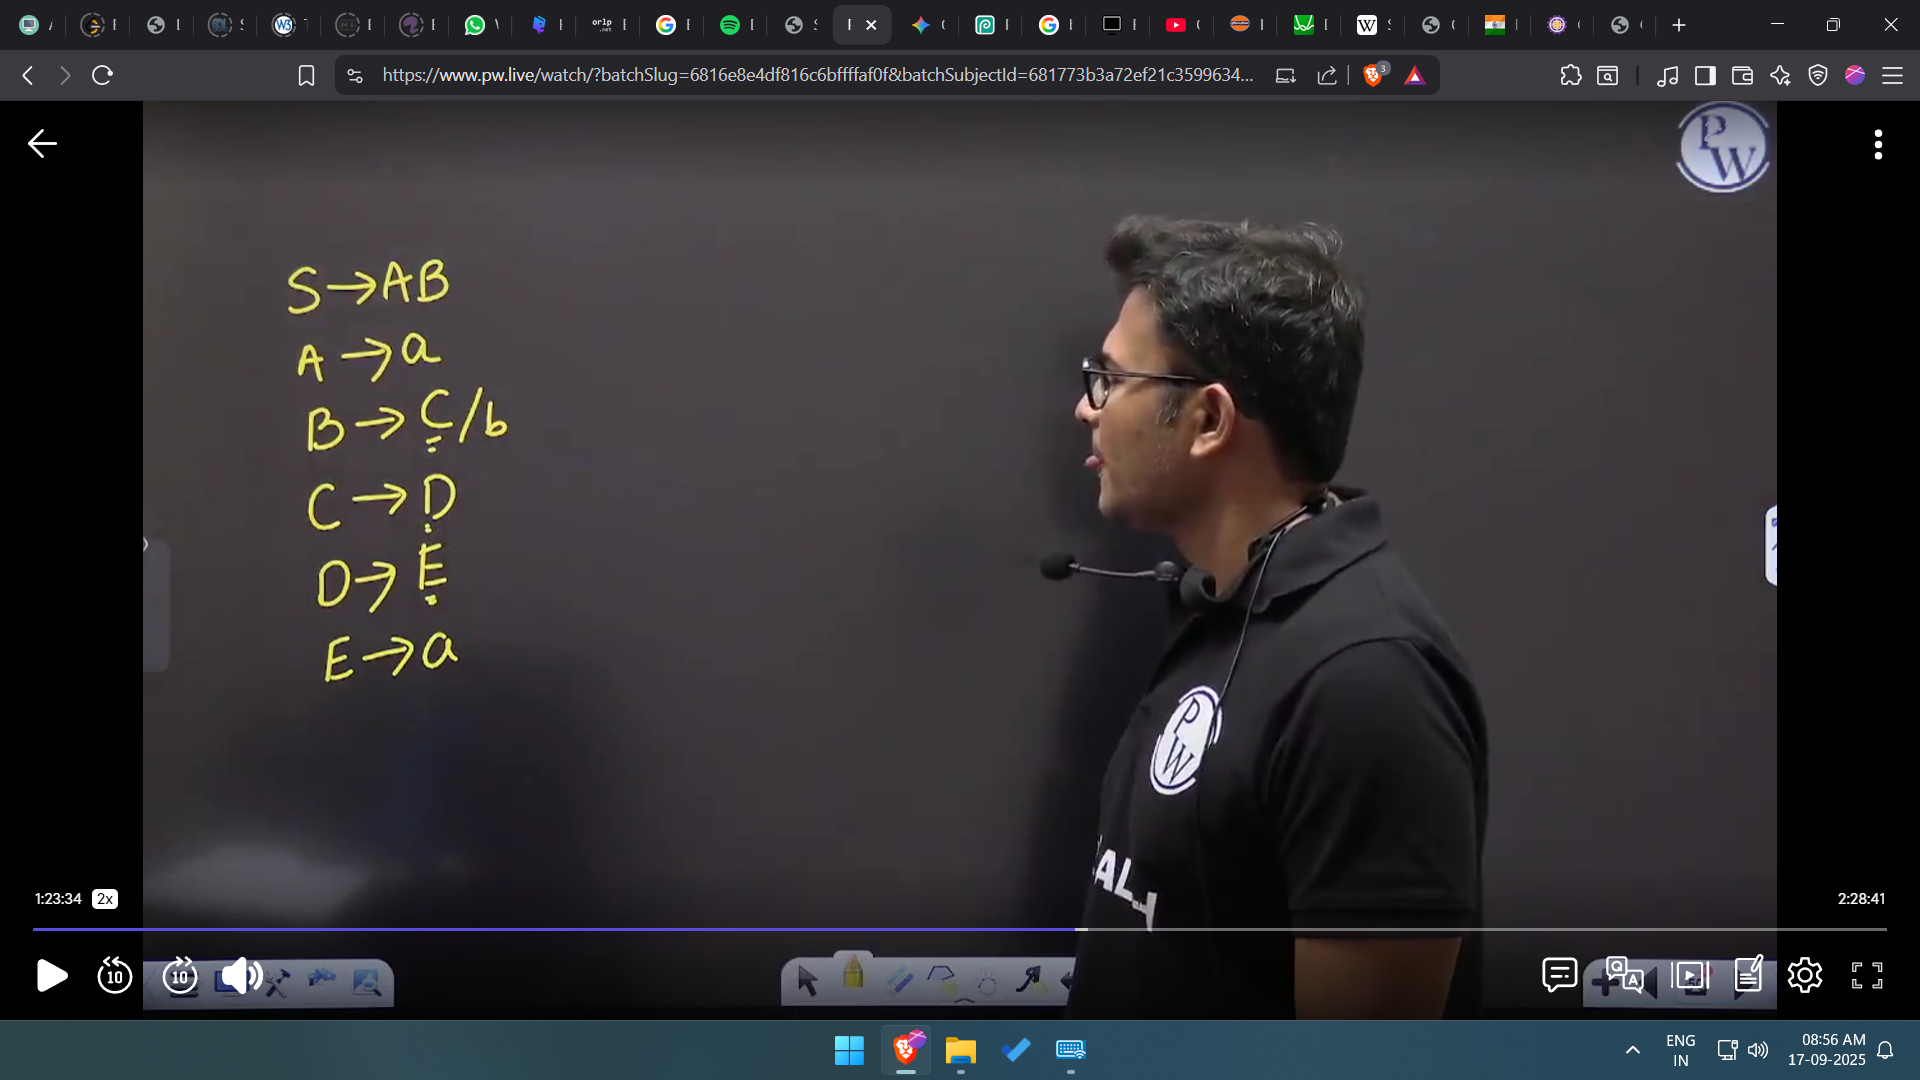 https://www.pw.live/watch/?batchSlug=6816e8e4df816c6bffffaf0f&batchSubjectId=681773b3a72ef21c3599634...
3
PW
S→AB
A→a
B→C/b
C→D
D→E
E→a
PW
1:23:34 2x
2:28:41
10 10
Q A
ENG
IN
08:56 AM
17-09-2025